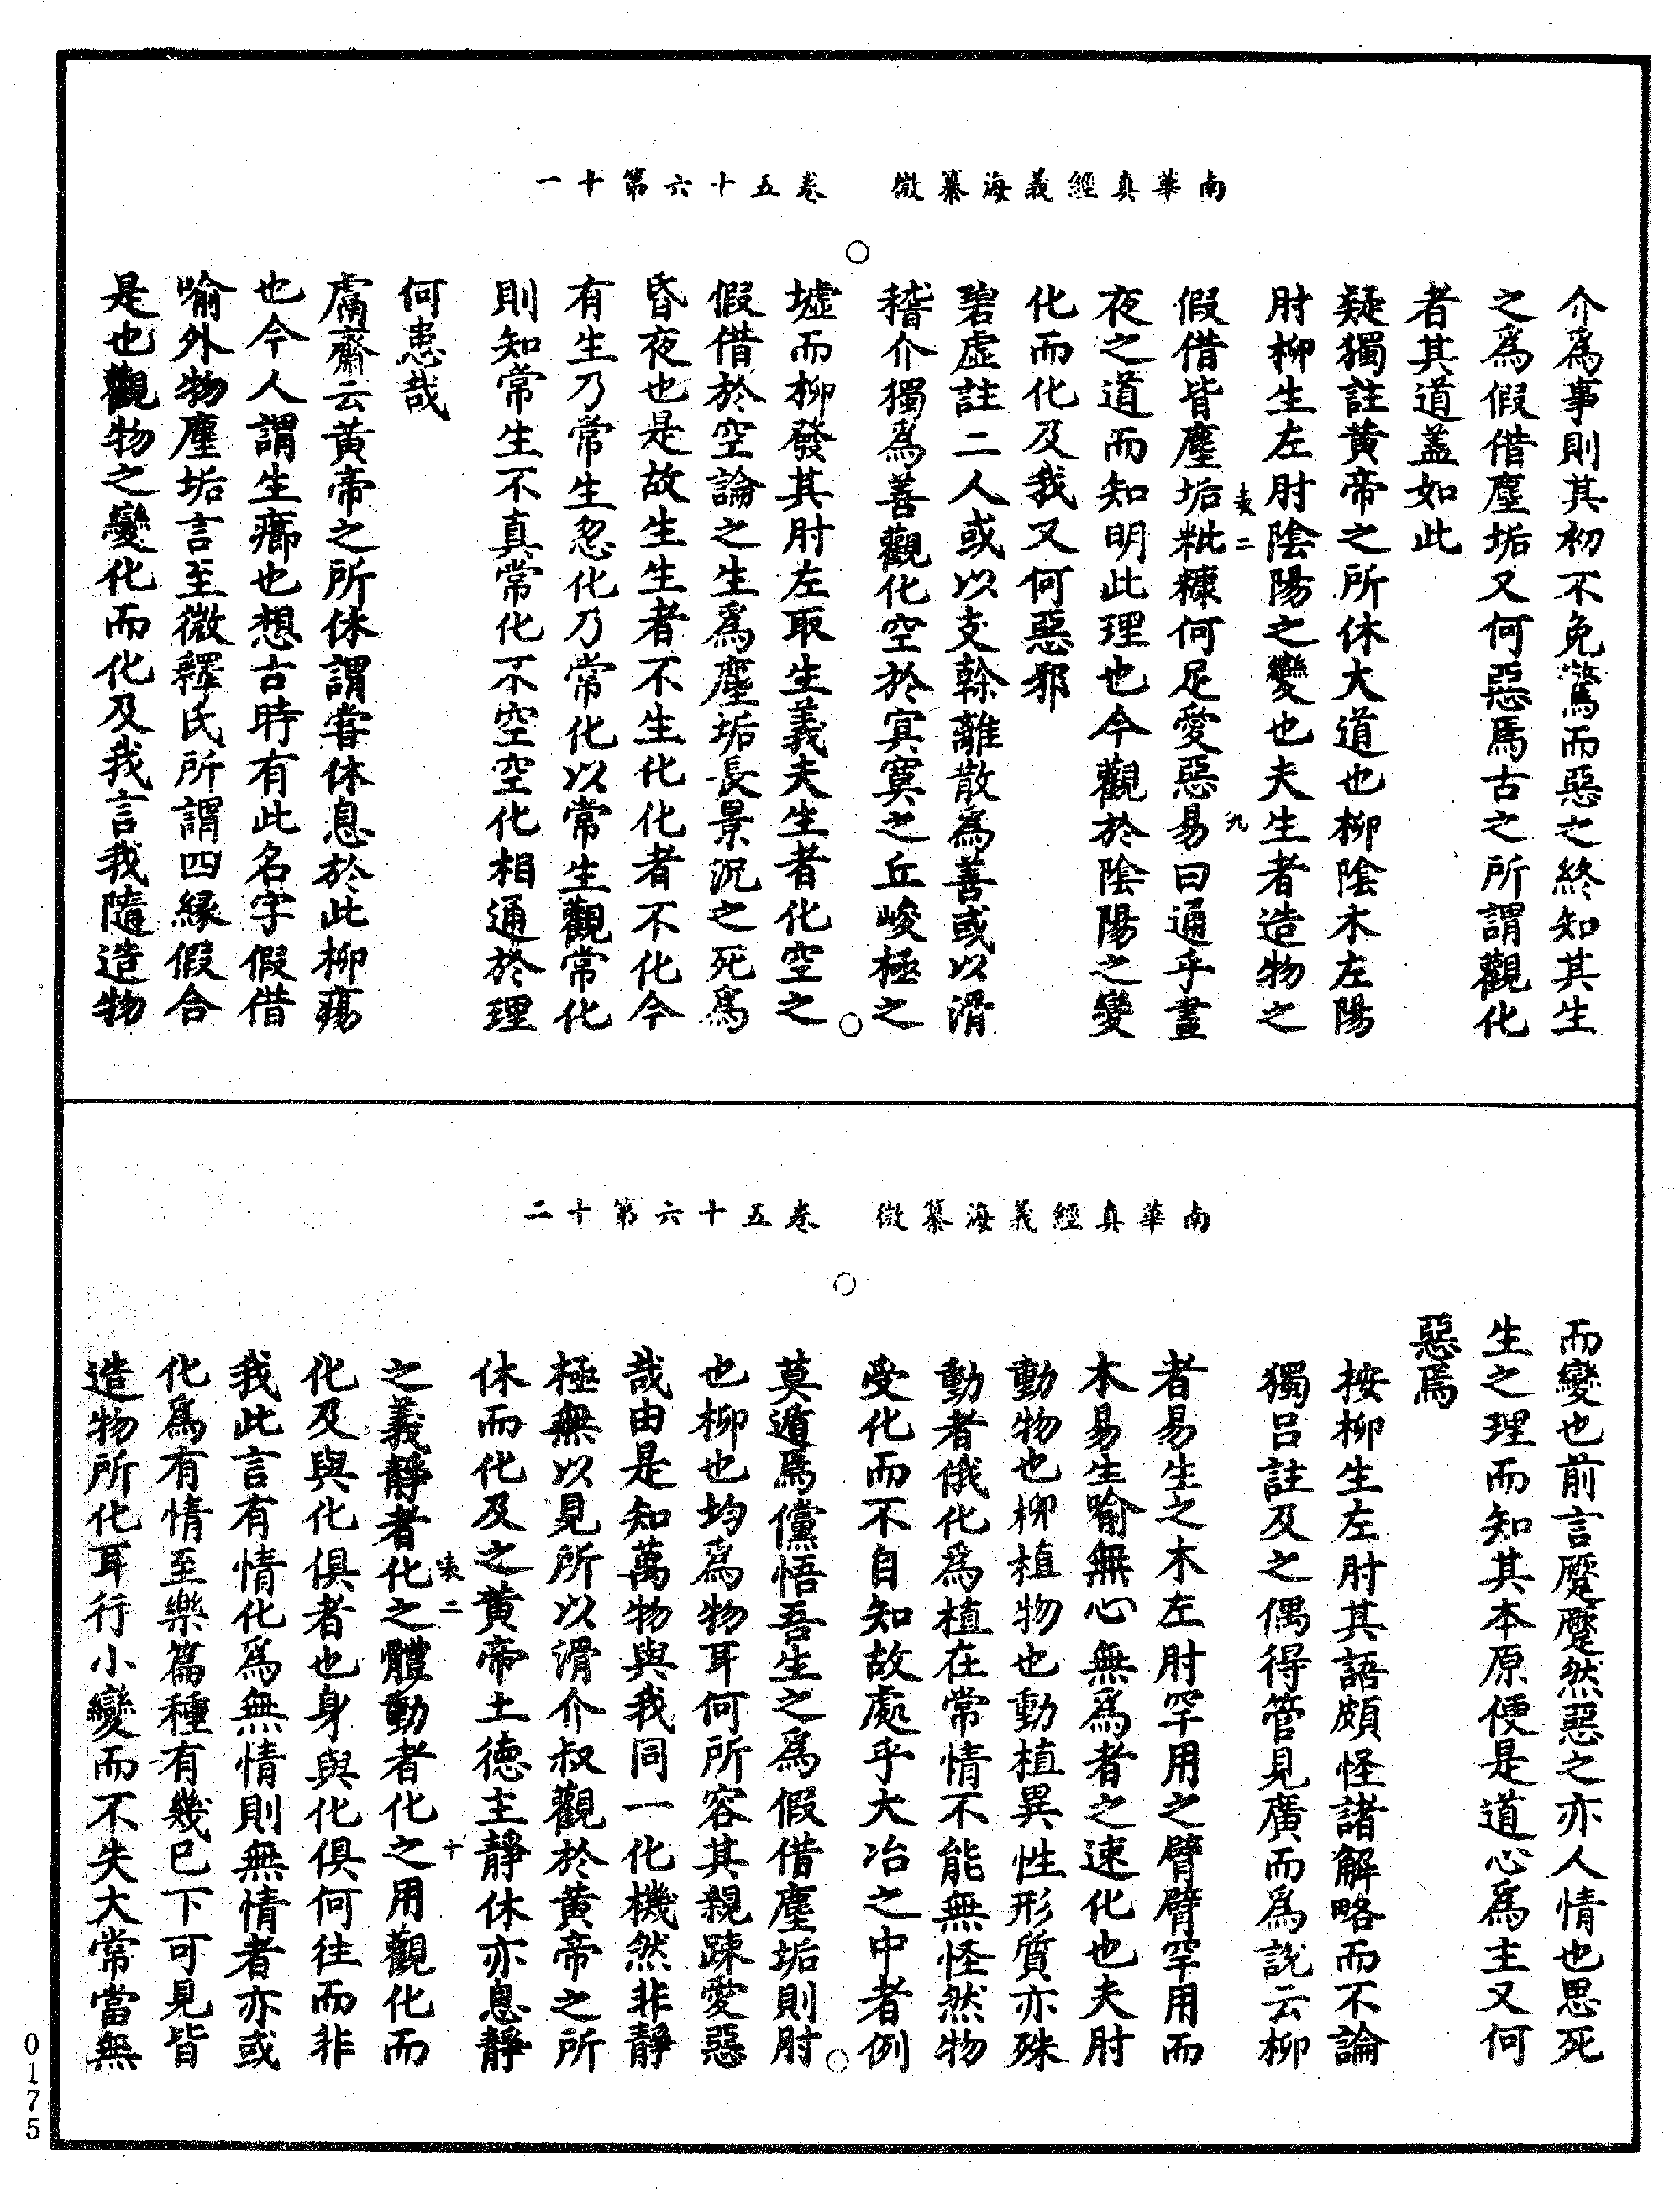 南華真經義海纂微　卷五十六第十一
介為事則其初不免驚而惡之終知其生
之為假借塵垢又何惡焉古之所謂觀化
者其道蓋如此
疑獨註黃帝之所休大道也柳陰木左陽
肘柳生左肘陰陽之變也夫生者造物之
假借皆塵垢粃糠何足愛惡易曰通乎晝
夜之道而知明此理也今觀於陰陽之變
化而化及我又何惡邪
碧虛註二人或以支離散為善或以滑
稽介獨為善觀化空於冥寞之丘峻極之
墟而柳發其肘左取生義夫生者化空之
假借於空論之生為塵垢長景況之死為
昏夜也是故生生者不生化化者不化今
有生乃常生忽化乃常化以常生觀常化
則知常生不真常化不空空化相通於理
何患哉
鬳齋云黃帝之所休謂嘗休息於此柳瘍
也今人謂生癤也想古時有此名字假借
喻外物塵垢言至微釋氏所謂四緣假合
是也觀物之變化而化及我言我隨造物
南華真經義海纂微　卷五十六第十二
而變也前言蹷蹷然惡之亦人情也思死
生之理而知其本原便是道心為主又何
惡焉
按柳生左肘其語頗怪諸解略而不論
獨呂註及之偶得管見廣而為說云柳
者易生之木左肘罕用之臂臂罕用而
木易生喻無心無為者之速化也夫肘
動物也柳植物也動植異性形質亦殊
動者俄化為植在常情不能無怪然物
受化而不自知故處乎大冶之中者例
莫遁焉儻悟吾生之為假借塵垢則肘
也柳也均為物耳何所容其親踈愛惡
哉由是知萬物與我同一化機然非靜
極無以見所以滑介叔觀於黃帝之所
休而化及之黃帝土德主靜休亦息靜
之義靜者化之體動者化之用觀化而
化及與化俱者也身與化俱何往而非
我此言有情化為無情則無情者亦或
化為有情至樂篇種有幾已下可見皆
造物所化耳行小變而不失大常當無
0175